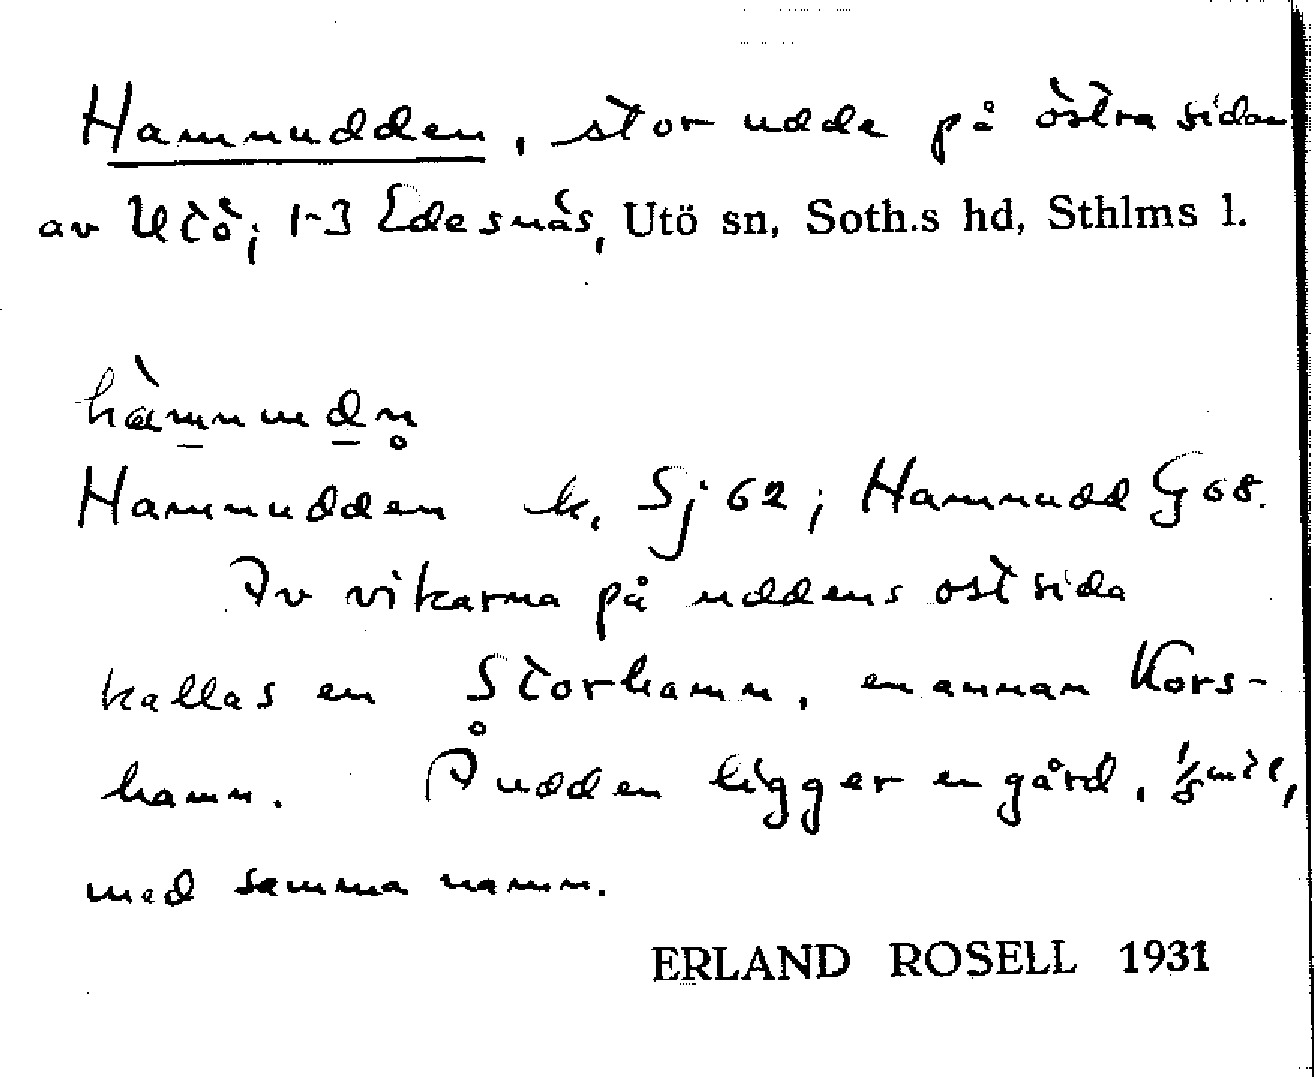 Hamnudden, stor udde på östra sidan
av Utö; 1-3 Edesnäs, Utö sn, Soth.s hd, Sthlms l.
hàmnudn̥
Hamnudden k. Sj 62; Hamnudd G 68.
Av vikarna på uddens ostsida
kallas en Storhamn, en annan Kors-
hamn. På udden ligger en gård, 1/8 mtl,
med samma namn.
ERLAND ROSELL 1931